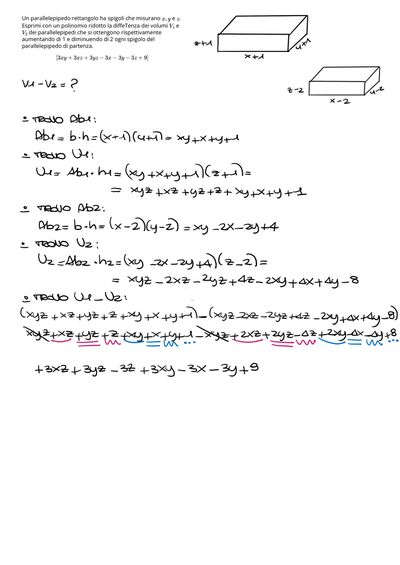 Un parallelepipedo rettangolo ha spigoli che misurano x, y e z.
Esprimi con un polinomio ridotto la differenza dei volumi V₁ e
V₂ dei parallelepipedi che si ottengono rispettivamente
aumentando di 1 e diminuendo di 2 ogni spigolo del
parallelepipedo di partenza.
[3xy + 3xz + 3yz − 3x − 3y − 3z + 9]
z+1
y+1
x+1
V1 - V2 = ?
z-2
y-2
x-2
• TROVO Ab1:
Ab1 = b·h = (x+1)(y+1) = xy+x+y+1
• TROVO V1:
V1 = Ab1·h1 = (xy+x+y+1)(z+1) =
= xyz+xz+yz+z+xy+x+y+1
• TROVO Ab2:
Ab2 = b·h = (x-2)(y-2) = xy-2x-2y+4
• TROVO V2:
V2 = Ab2·h2 = (xy-2x-2y+4)(z-2) =
= xyz-2xz-2yz+4z-2xy+4x+4y-8
• TROVO V1-V2:
(xyz+xz+yz+z+xy+x+y+1)-(xyz-2xz-2yz+4z-2xy+4x+4y-8)
xyz+xz+yz+z+xy+x+y+1-xyz+2xz+2yz-4z+2xy-4x-4y+8
+3xz+3yz-3z+3xy-3x-3y+9